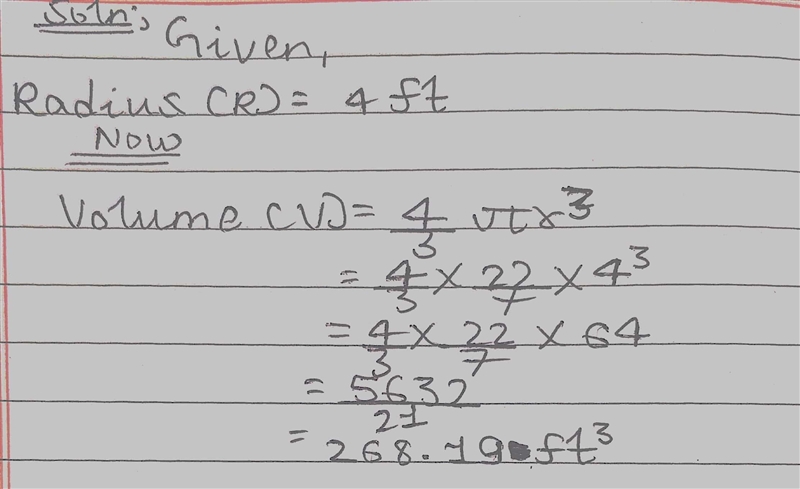 Soln:, Given,
Radius (R) = 4 ft
Now
Volume (V) = 4/3 πr³
= 4/3 × 22/7 × 4³
= 4/3 × 22/7 × 64
= 5632/21
= 268.19 ft³